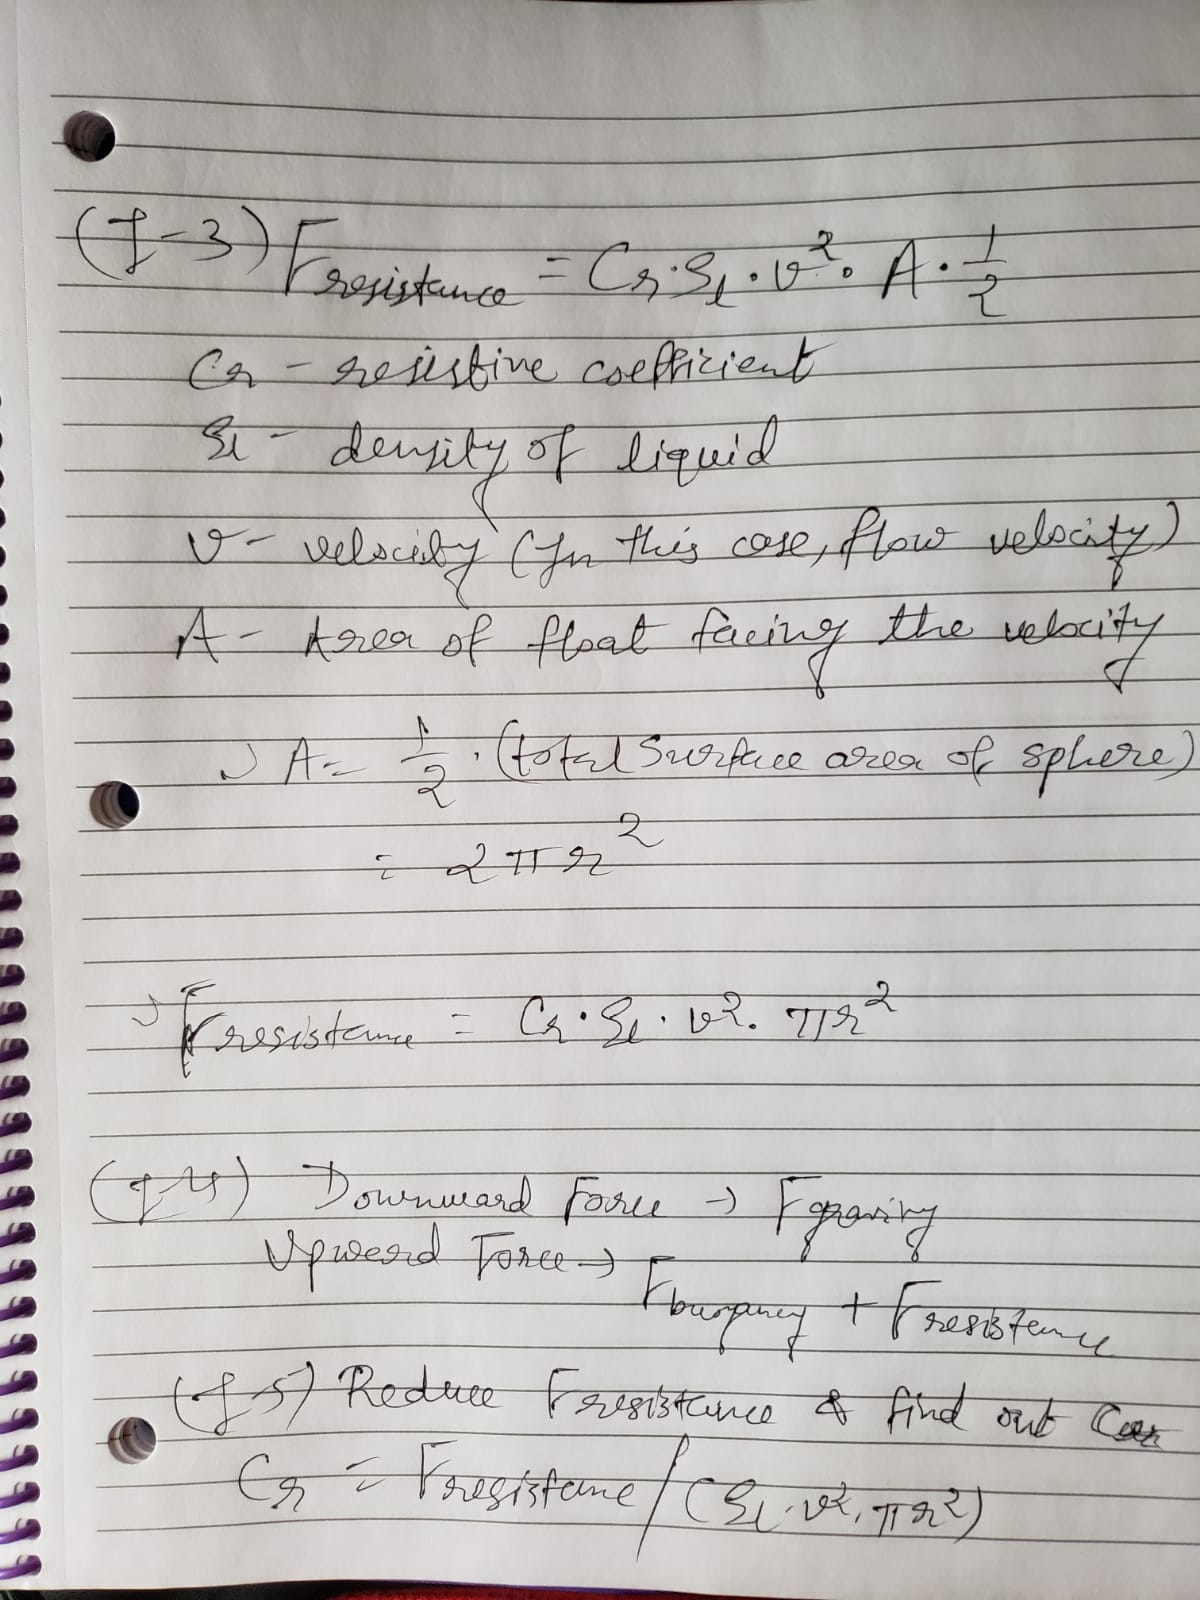 (f-3) Fresistance = Cr·ρl·v²·A·1/2
Cr - resistive coefficient
ρl - density of liquid
v - velocity (In this case, flow velocity)
A - Area of float facing the velocity
A = 1/2 · (total surface area of sphere)
= 2πr²
Fresistance = Cr·ρl·v²·πr²
(f-4) Downward Force → Fgravity
Upward Force → Fbuoyancy + Fresistance
(f-5) Reduce Fresistance & find out Cr
Cr = Fresistane/(ρl·v²·πr²)